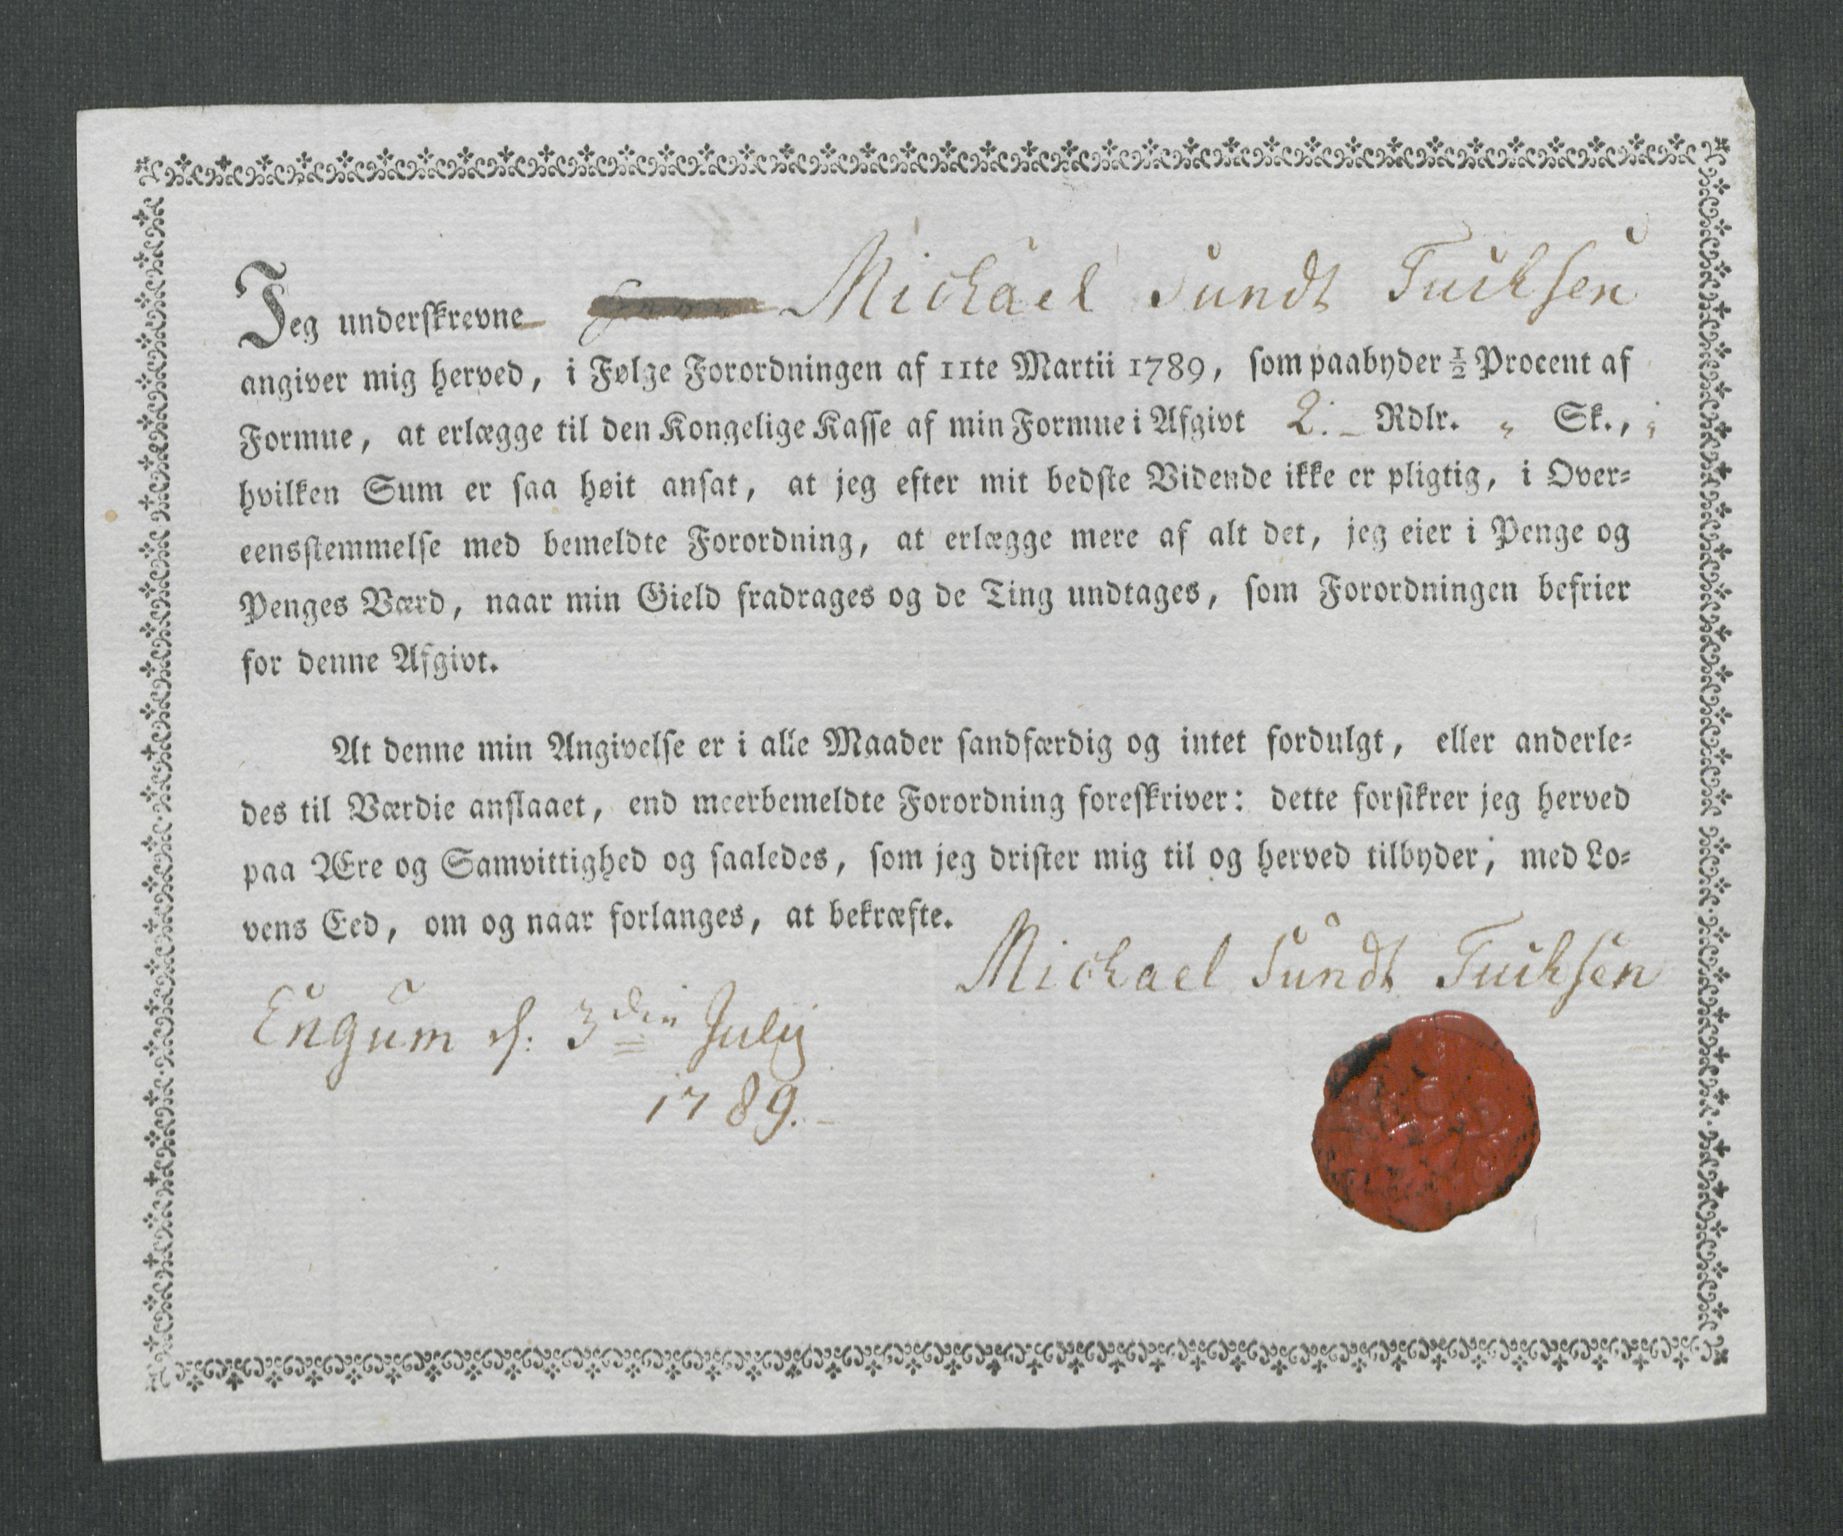 Jeg underskrevne Michael Sundt Tuchsen
angiver mig herved, i Følge Forordningen af 11te Martii 1789, som paabyder ½ Procent af
Formue, at erlægge til den Kongelige Kasse af min Formue i Afgivt 2. Rdlr. " Sk.,
hvilken Sum er saa høit ansat, at jeg efter mit bedste Vidende ikke er pligtig, i Over-
eensstemmelse med bemeldte Forordning, at erlægge mere af alt det, jeg eier i Penge og
Penges Værd, naar min Gield fradrages og de Ting undtages, som Forordningen befrier
for denne Afgivt.
At denne min Angivelse er i alle Maader sandfærdig og intet fordulgt, eller anderle-
des til Værdie anslaaet, end meerbemeldte Forordning foreskriver: dette forsikrer jeg herved
paa Ære og Samvittighed og saaledes, som jeg drister mig til og herved tilbyder, med Lo-
vens Eed, om og naar forlanges, at bekræfte.
Michael Sundt Tuchsen
Engum d: 3den Julij
1789.